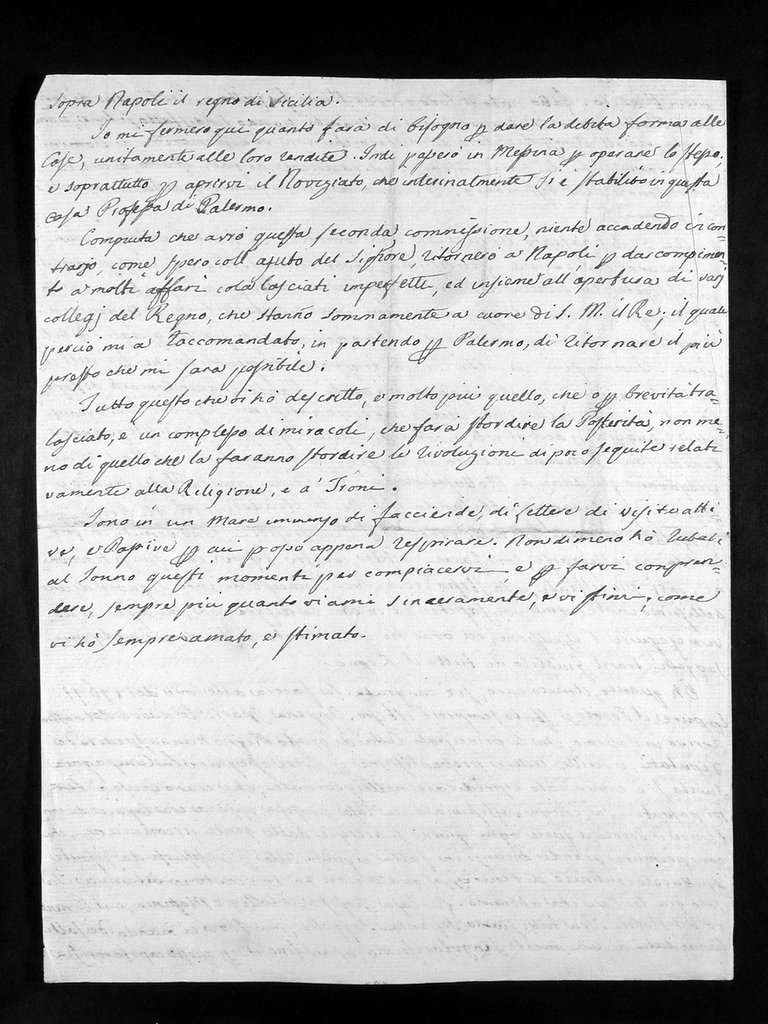 sopra Napoli il regno di Sicilia.
Io mi fermerò qui quanto farà di bisogno p dare la debita forma alle
Case, unitamente alle loro rendite. Indi passerò in Messina p operare lo stesso,
e soprattutto p aprirvi il Noviziato, che interinalmente si è stabilito in questa
Casa Professa di Palermo.
Compiuta che avrò questa seconda commissione, niente accadendo in con-
trario, come spero coll'ajuto del Signore, ritornerò a Napoli p dar compimen-
to a molti affari colà lasciati imperfetti, ed insieme all'apertura di varj
collegj del Regno, che stanno sommamente a cuore di S. M. il Re; il quale
perciò mi à raccomandato, in partendo p Palermo, di ritornare il più
presto che mi sarà possibile.
Tutto questo che vi hò descritto, e molto più quello, che o p brevità tra-
lasciato, è un complesso di miracoli, che farà stordire la Posterità, non me-
no di quello che la faranno stordire le rivoluzioni di poco seguite relati
vamente alla Religione, e a' Troni.
Sono in un Mare immenso di facciende, di lettere di visite atti-
ve, e Passive p cui posso appena respirare. Nondimeno hò rubati
al sonno questi momenti per compiacervi e p farvi compren-
dere, sempre più quanto vi ami sinceramente, e vi stimi, come
vi hò sempre amato, e stimato.